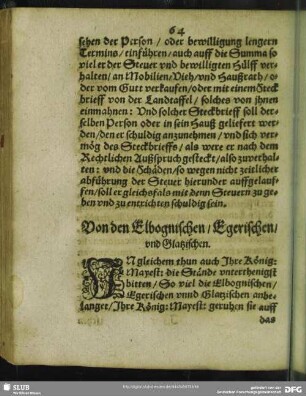 64
schen der Person / oder bewilligung lengern
Termins / einführen / auch auff die Summa so
viel er der Steuer vnd bewilligten Hülff ver-
halten / an Mobilien / Vieh / vnd Haußrath / o-
der vom Gutt verkaufen / oder mit einem Steck
brieff von der Landtaffel / solches von jhnen
einmahnen: Vnd solcher Steckbrieff soll der-
selben Person oder in sein Hauß geliefert wer-
den / den er schuldig anzunehmen / vnd sich ver-
mög des Steckbrieffs / als were er nach dem
Rechtlichen Außspruch gesteckt / also zuverhal-
ten: vnd die Schäden / so wegen nicht zeitlicher
abführung der Steuer hierunder auffgelauf-
fen / soll er gleichsfals mit denn Steuern zu ge-
ben vnd zu entrichten schuldig sein.
Von den Elbognischen / Egerischen /
vnd Glatzischen.
IN gleichem thun auch Ihre König:
Mayest: die Stände vnterthenigst
bitten / So viel die Elbognischen /
Egerischen vnnd Glatzischen anbe-
langet / Ihre König: Mayest: geruhen sie auff
das
SLUB